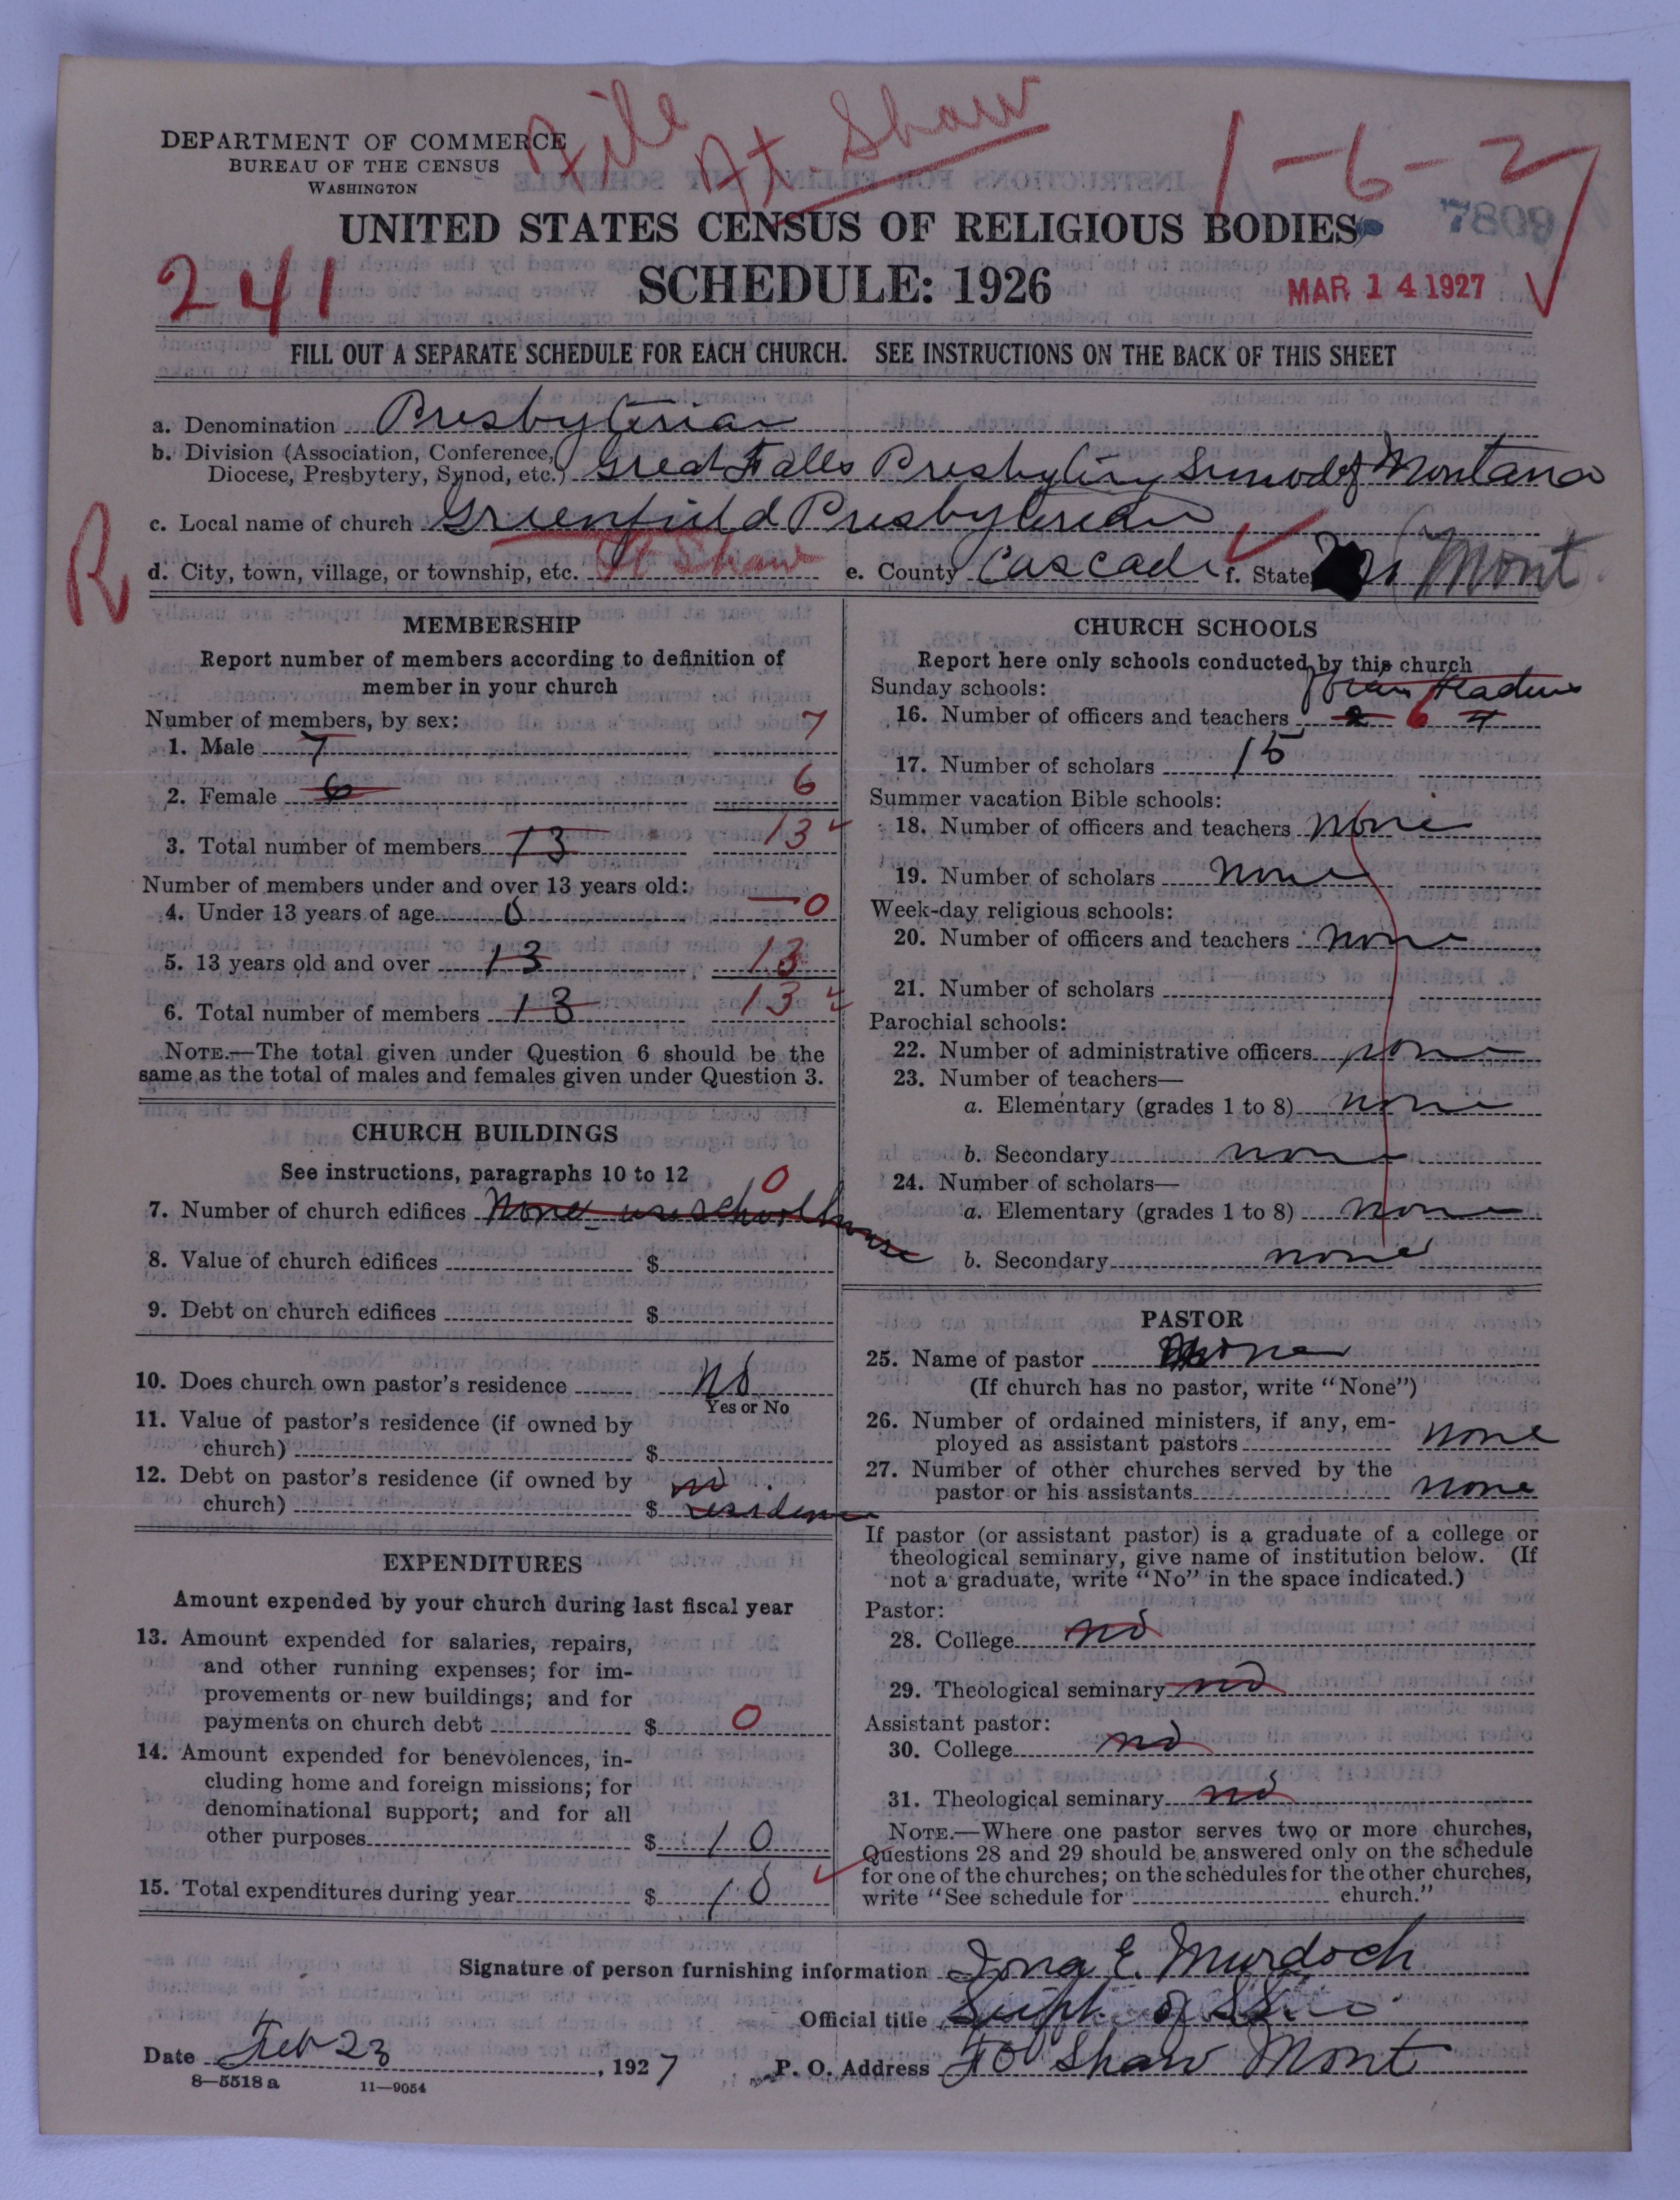 File
At Shaw
1-6-2
DEPARTMENT OF COMMERCE
BUREAU OF THE CENSUS
WASHINGTON
UNITED STATES CENSUS OF RELIGIOUS BODIES
7809
241
SCHEDULE: 1926
MAR 14 1927
FILL OUT A SEPARATE SCHEDULE FOR EACH CHURCH. SEE INSTRUCTIONS ON THE BACK OF THIS SHEET
a. Denomination Presbyterian
b. Division (Association, Conference,
Diocese, Presbytery, Synod, etc.) Great Falls Presbytery Synod of Montana
c. Local name of church Greenfield Presbyterian
R
d. City, town, village, or township, etc. Ft Shaw e. County Cascade f. State Mont.
MEMBERSHIP
Report number of members according to definition of
member in your church
Number of members, by sex:
1. Male 7 7
2. Female 6 6
3. Total number of members 13 13
Number of members under and over 13 years old:
4. Under 13 years of age 0 0
5. 13 years old and over 13 13
6. Total number of members 13 13
NOTE.—The total given under Question 6 should be the
same as the total of males and females given under Question 3.
CHURCH BUILDINGS
See instructions, paragraphs 10 to 12
0
7. Number of church edifices None use school house
8. Value of church edifices $
9. Debt on church edifices $
10. Does church own pastor's residence No
Yes or No
11. Value of pastor's residence (if owned by
church) $
12. Debt on pastor's residence (if owned by no
church) $ residence
EXPENDITURES
Amount expended by your church during last fiscal year
13. Amount expended for salaries, repairs,
and other running expenses; for im-
provements or new buildings; and for
payments on church debt $ 0
14. Amount expended for benevolences, in-
cluding home and foreign missions; for
denominational support; and for all
other purposes $ 10
15. Total expenditures during year $ 10
CHURCH SCHOOLS
Report here only schools conducted by this church
Sunday schools:
16. Number of officers and teachers 2 6 4
17. Number of scholars 15
Summer vacation Bible schools:
18. Number of officers and teachers none
19. Number of scholars none
Week-day religious schools:
20. Number of officers and teachers none
21. Number of scholars
Parochial schools:
22. Number of administrative officers none
23. Number of teachers—
a. Elementary (grades 1 to 8) none
b. Secondary none
24. Number of scholars—
a. Elementary (grades 1 to 8) none
b. Secondary none
PASTOR
25. Name of pastor None
(If church has no pastor, write "None")
26. Number of ordained ministers, if any, em-
ployed as assistant pastors none
27. Number of other churches served by the
pastor or his assistants none
If pastor (or assistant pastor) is a graduate of a college or
theological seminary, give name of institution below. (If
not a graduate, write "No" in the space indicated.)
Pastor:
28. College no
29. Theological seminary no
Assistant pastor:
30. College no
31. Theological seminary no
NOTE.—Where one pastor serves two or more churches,
Questions 28 and 29 should be answered only on the schedule
for one of the churches; on the schedules for the other churches,
write "See schedule for church."
Signature of person furnishing information Iona E. Murdoch
Official title Supt of
Date Feb 23, 1927 P. O. Address Ft Shaw Mont
8—5518 a 11—9054